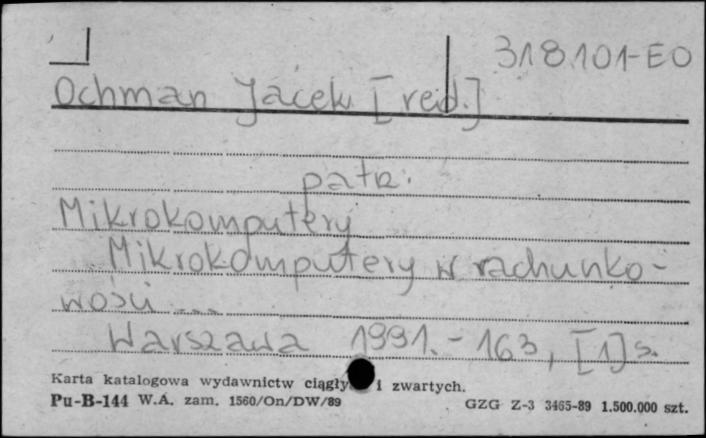 318101-EO
Ochman Jacek [red.]
patrz:
Mikrokomputery
Mikrokomputery w rachunko-
wości ...
Warszawa 1991. - 163, [1] s.
Karta katalogowa wydawnictw ciągły i zwartych.
Pu-B-144 W.A. zam. 1560/On/DW/89 GZG Z-3 3465-89 1.500.000 szt.